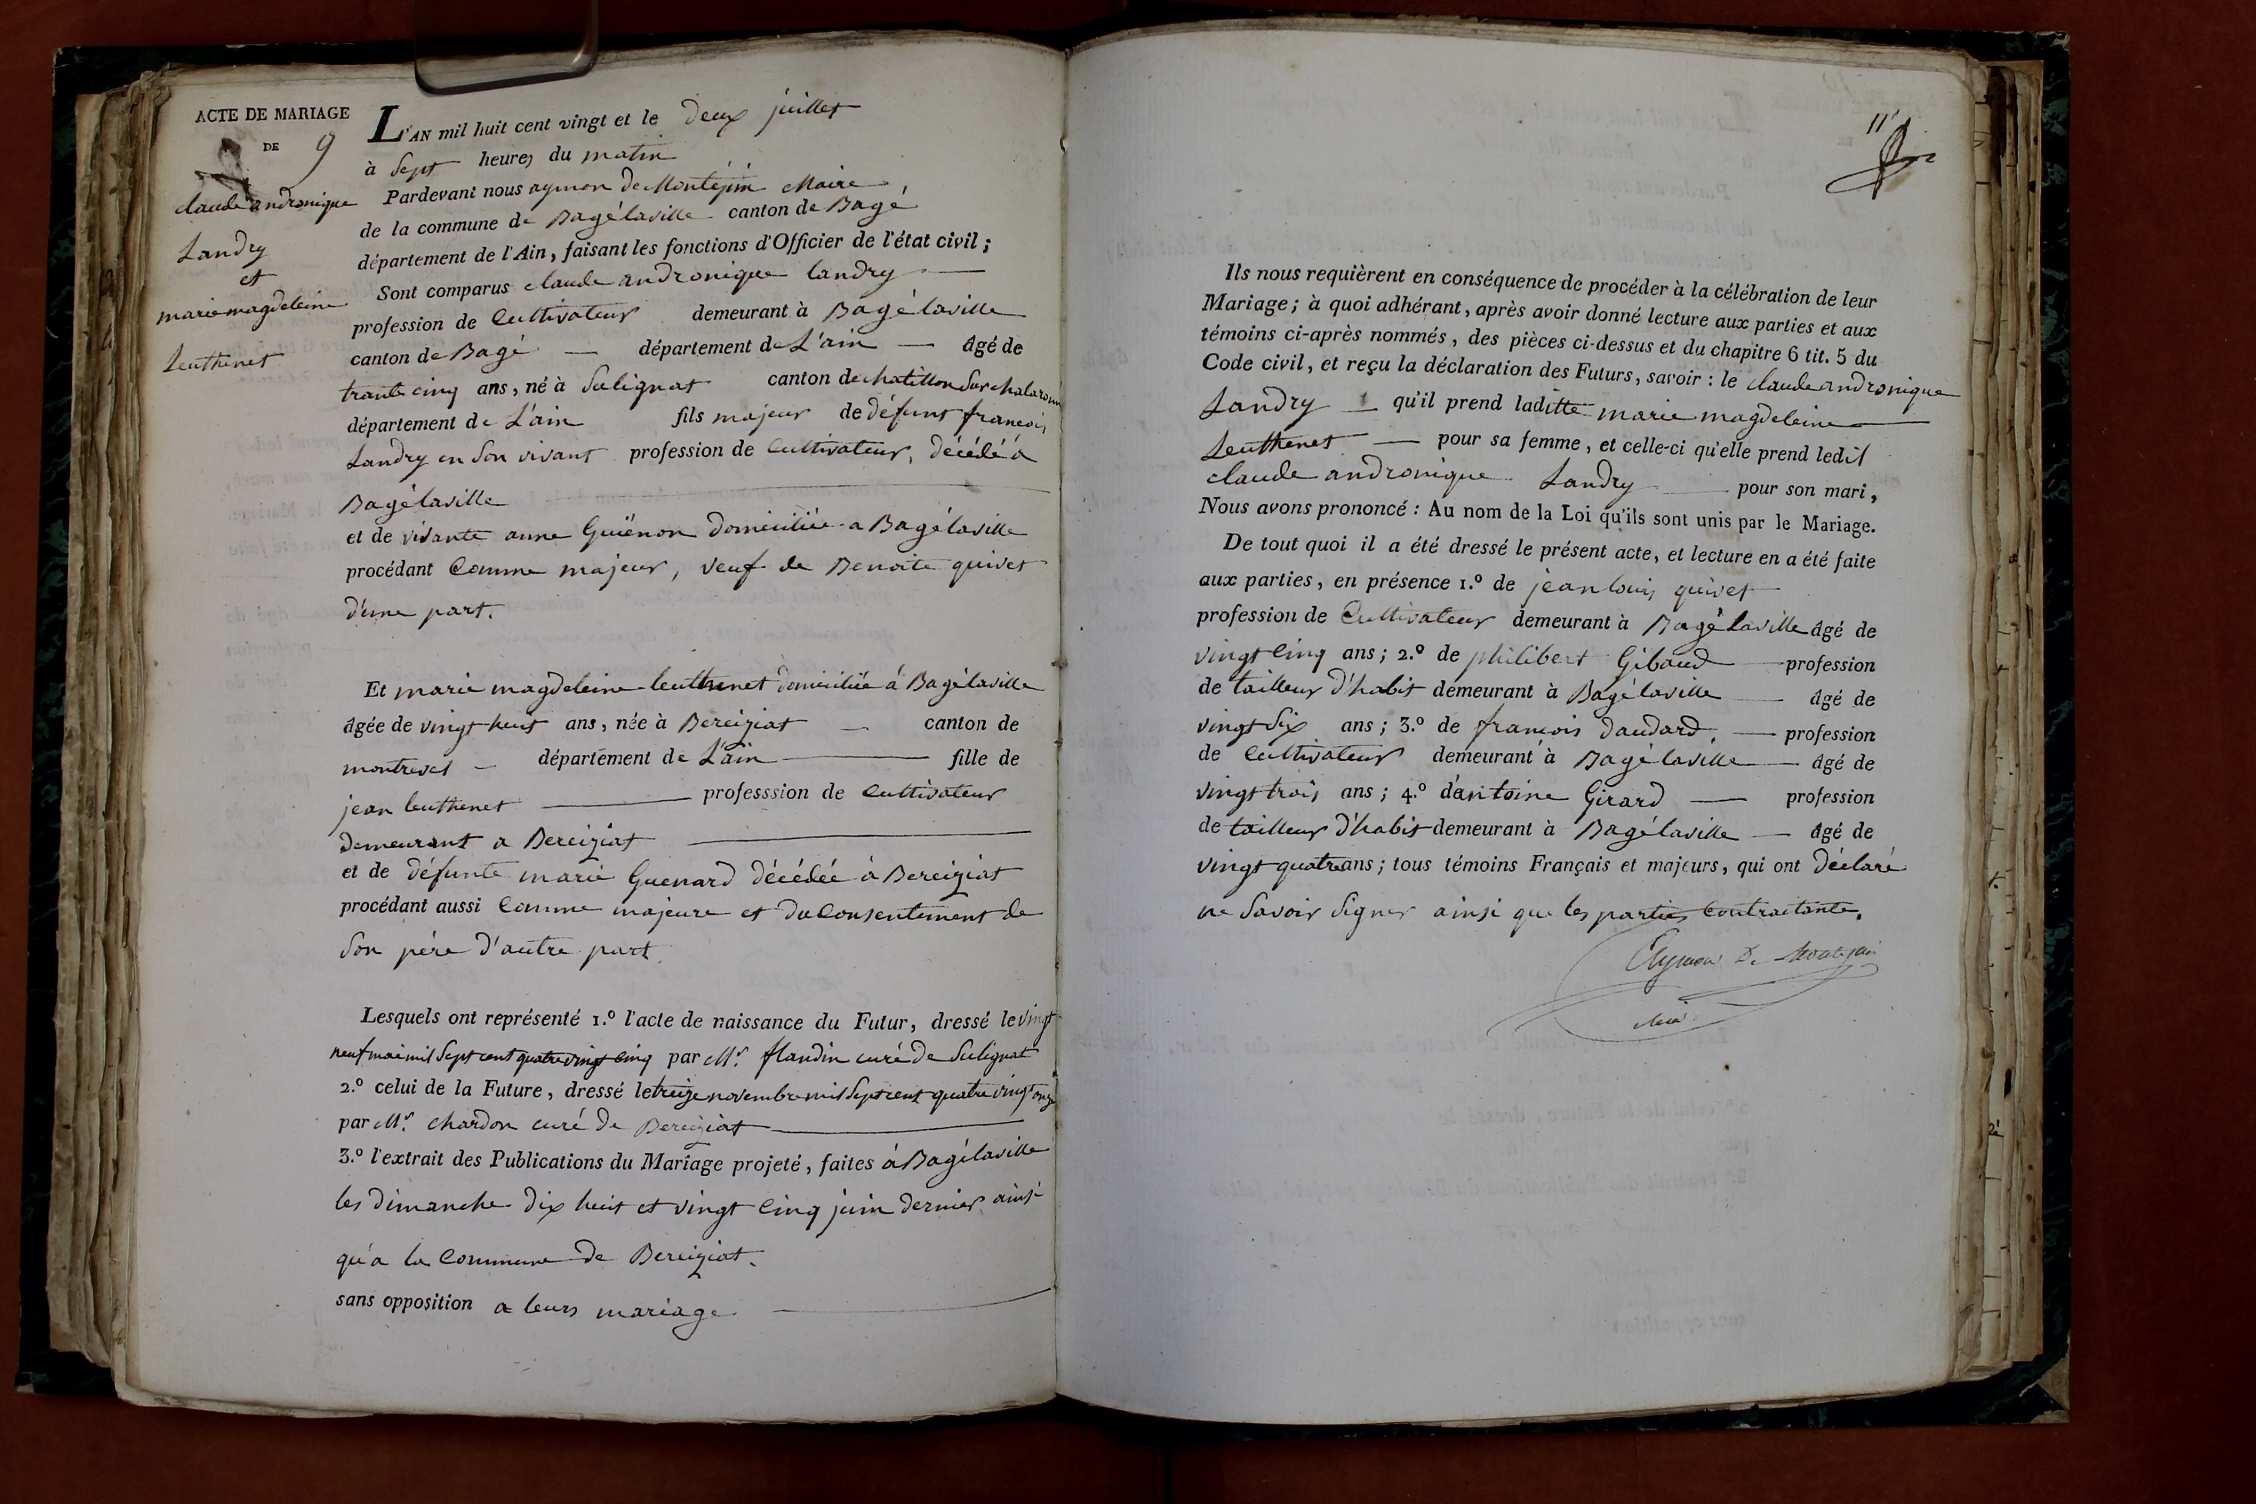 ACTE DE MARIAGE
DE 9
claude andronique
Landry
et
marie magdeleine
Leuthenet
L'AN mil huit cent vingt et le deux juillet
à Sept heures du matin
Pardevant nous aymon De Montépin Maire
de la commune de Bagélaville canton de Bagé
département de l'Ain, faisant les fonctions d'Officier de l'état civil ;
Sont comparus claude andronique landry
profession de Cultivateur demeurant à Bagélaville
canton de Bagé département de L'ain âgé de
trante cinq ans, né à Sulignat canton de chatillon Sur chalaronne
département de L'ain fils majeur de défunt francois
Landry en Son vivant profession de Cultivateur, décédé á
Bagélaville
et de vivante anne Guënon domiciliée a Bagélaville
procédant Comme majeur, veuf de Benoite quivet
d'une part.
Et marie magdeleine leuthenet domiciliée á Bagélaville
âgée de vingt huit ans, née à Bereiziat canton de
montrevel département de L'ain fille de
jean leuthenet professsion de Cultivateur
demeurant a Bereiziat
et de défunte marie Guenard décédée à Bereiziat
procédant aussi Comme majeure et du Consentement de
Son pére d'autre part.
Lesquels ont représenté 1.º l'acte de naissance du Futur, dressé le vingt
neuf mai mil Sept cent quatre vingt cinq par Mr. flandin curé de Sulignat
2.º celui de la Future, dressé le treize novembre mil Sept cent quatre vingt onze
par Mr. chardon curé de Bereiziat
3.º l'extrait des Publications du Mariage projeté, faites á Bagélaville
les dimanche dix huit et vingt Cinq juin dernier ainsi
qu'a la Commune de Bereiziat.
sans opposition a leurs mariage
11
Ils nous requièrent en conséquence de procéder à la célébration de leur
Mariage ; à quoi adhérant, après avoir donné lecture aux parties et aux
témoins ci-après nommés, des pièces ci-dessus et du chapitre 6 tit. 5 du
Code civil, et reçu la déclaration des Futurs, savoir : le claude andronique
Landry qu'il prend laditte marie magdeleine
Leuthenet pour sa femme, et celle-ci qu'elle prend ledit
claude andronique Landry pour son mari,
Nous avons prononcé : Au nom de la Loi qu'ils sont unis par le Mariage.
De tout quoi il a été dressé le présent acte, et lecture en a été faite
aux parties, en présence 1.º de jean louis quivet
profession de Cultivateur demeurant à Bagélaville âgé de
vingt Cinq ans ; 2.º de philibert Gibaud profession
de tailleur d'habit demeurant à Bagélaville âgé de
vingt Six ans ; 3.º de francois daudard. profession
de Cultivateur demeurant à Bagélaville âgé de
vingt trois ans ; 4.º d'antoine Girard profession
de tailleur d'habit demeurant à Bagélaville âgé de
vingt quatre ans ; tous témoins Français et majeurs, qui ont déclaré
ne Savoir Signer ainsi que les parties Contractante.
Aymon De Montepin